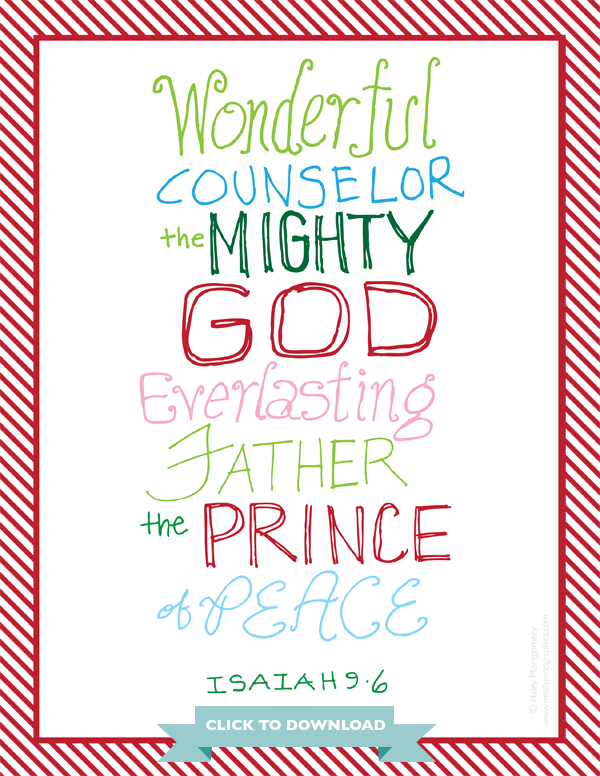 Wonderful
COUNSELOR
the MIGHTY
GOD
Everlasting
FATHER
the PRINCE
of PEACE
ISAIAH 9.6
CLICK TO DOWNLOAD
© Haley Montgomery
www.smallpondgraphics.com